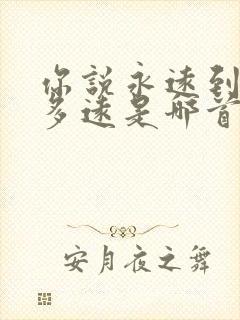 你說永遠到
多遠是那首
安月夜之舞